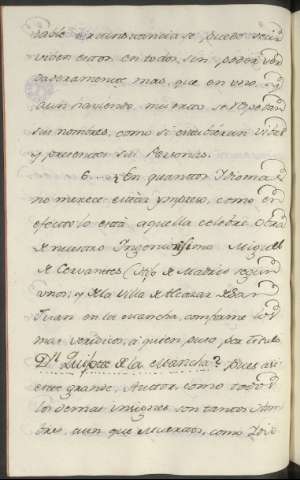 circunstancia se puede decir
viven estos en todos, sin poder ver
daderamente mas, que en uno, y
aun haviendo muerto se
sus nombres, como si estubieran vivas
y presentes sus Personas.
6. En quantos Idiomas
no merece estár ympreso, como en
efecto lo está aquella celebre Obra
de nuestro Ingeniosísimo Miguel
de Cervantes (Hijo de Madrid segun
unos, y de la Villa de Alcazar de San
Juan en la Mancha, conforme
mas veridicos) á quien puso por titulo
Dn. Quijote de la Mancha? Pues asi
este grande Auctor, como todos
los demas insignes son tantos Hom
bres, aun que Muertos, como